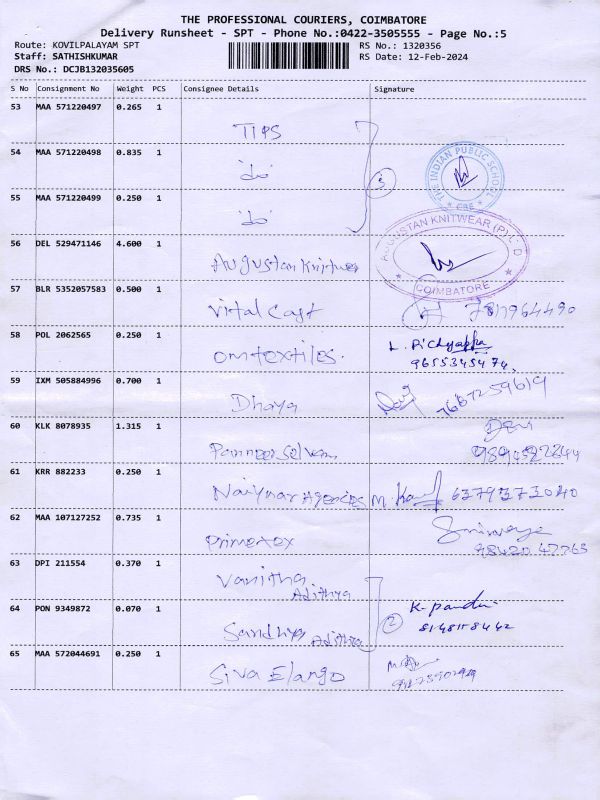 THE PROFESSIONAL COURIERS, COIMBATORE
Delivery Runsheet - SPT - Phone No.:0422-3505555 - Page No.:5
Route: KOVILPALAYAM SPT
RS No.: 1320356
Staff: SATHISHKUMAR
RS Date: 12-Feb-2024
DRS No.: DCJB132035605
S No Consignment No Weight PCS Consignee Details Signature
53 MAA 571220497 0.265 1
TIPS
54 MAA 571220498 0.835 1
"do"
3
THE INDIAN PUBLIC SCHOOL
* CBE *
55 MAA 571220499 0.250 1
"do"
56 DEL 529471146 4.600 1
Augustan Knitwear
AUGUSTAN KNITWEAR (P) LTD
COIMBATORE
57 BLR 5352057583 0.500 1
Vital Cast
58 POL 2062565 0.250 1
Om textiles.
9655345474.
59 IXM 505884996 0.700 1
Dhaya
7667259619
60 KLK 8078935 1.315 1
Panneer Selvam
61 KRR 882233 0.250 1
Naiynar Agencies
62 MAA 107127252 0.735 1
Primetex
98420 47765
63 DPI 211554 0.370 1
Vanitha
Adithya
64 PON 9349872 0.070 1
Sandhya Adithya
2
K. pandi
8148158442
65 MAA 572044691 0.250 1
Siva Elango